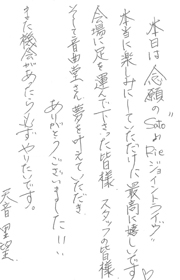 本日は念願の"Satoお Rieジョイントライブ"
本当に楽しみにしていただけに最高に嬉しいです♡
会場に足を運んで下さった皆様、スタッフの皆様
そして音曲堂さん夢を叶えていただき
ありがとうございました!!
また機会があったら必ずやりたいです。
天音里望